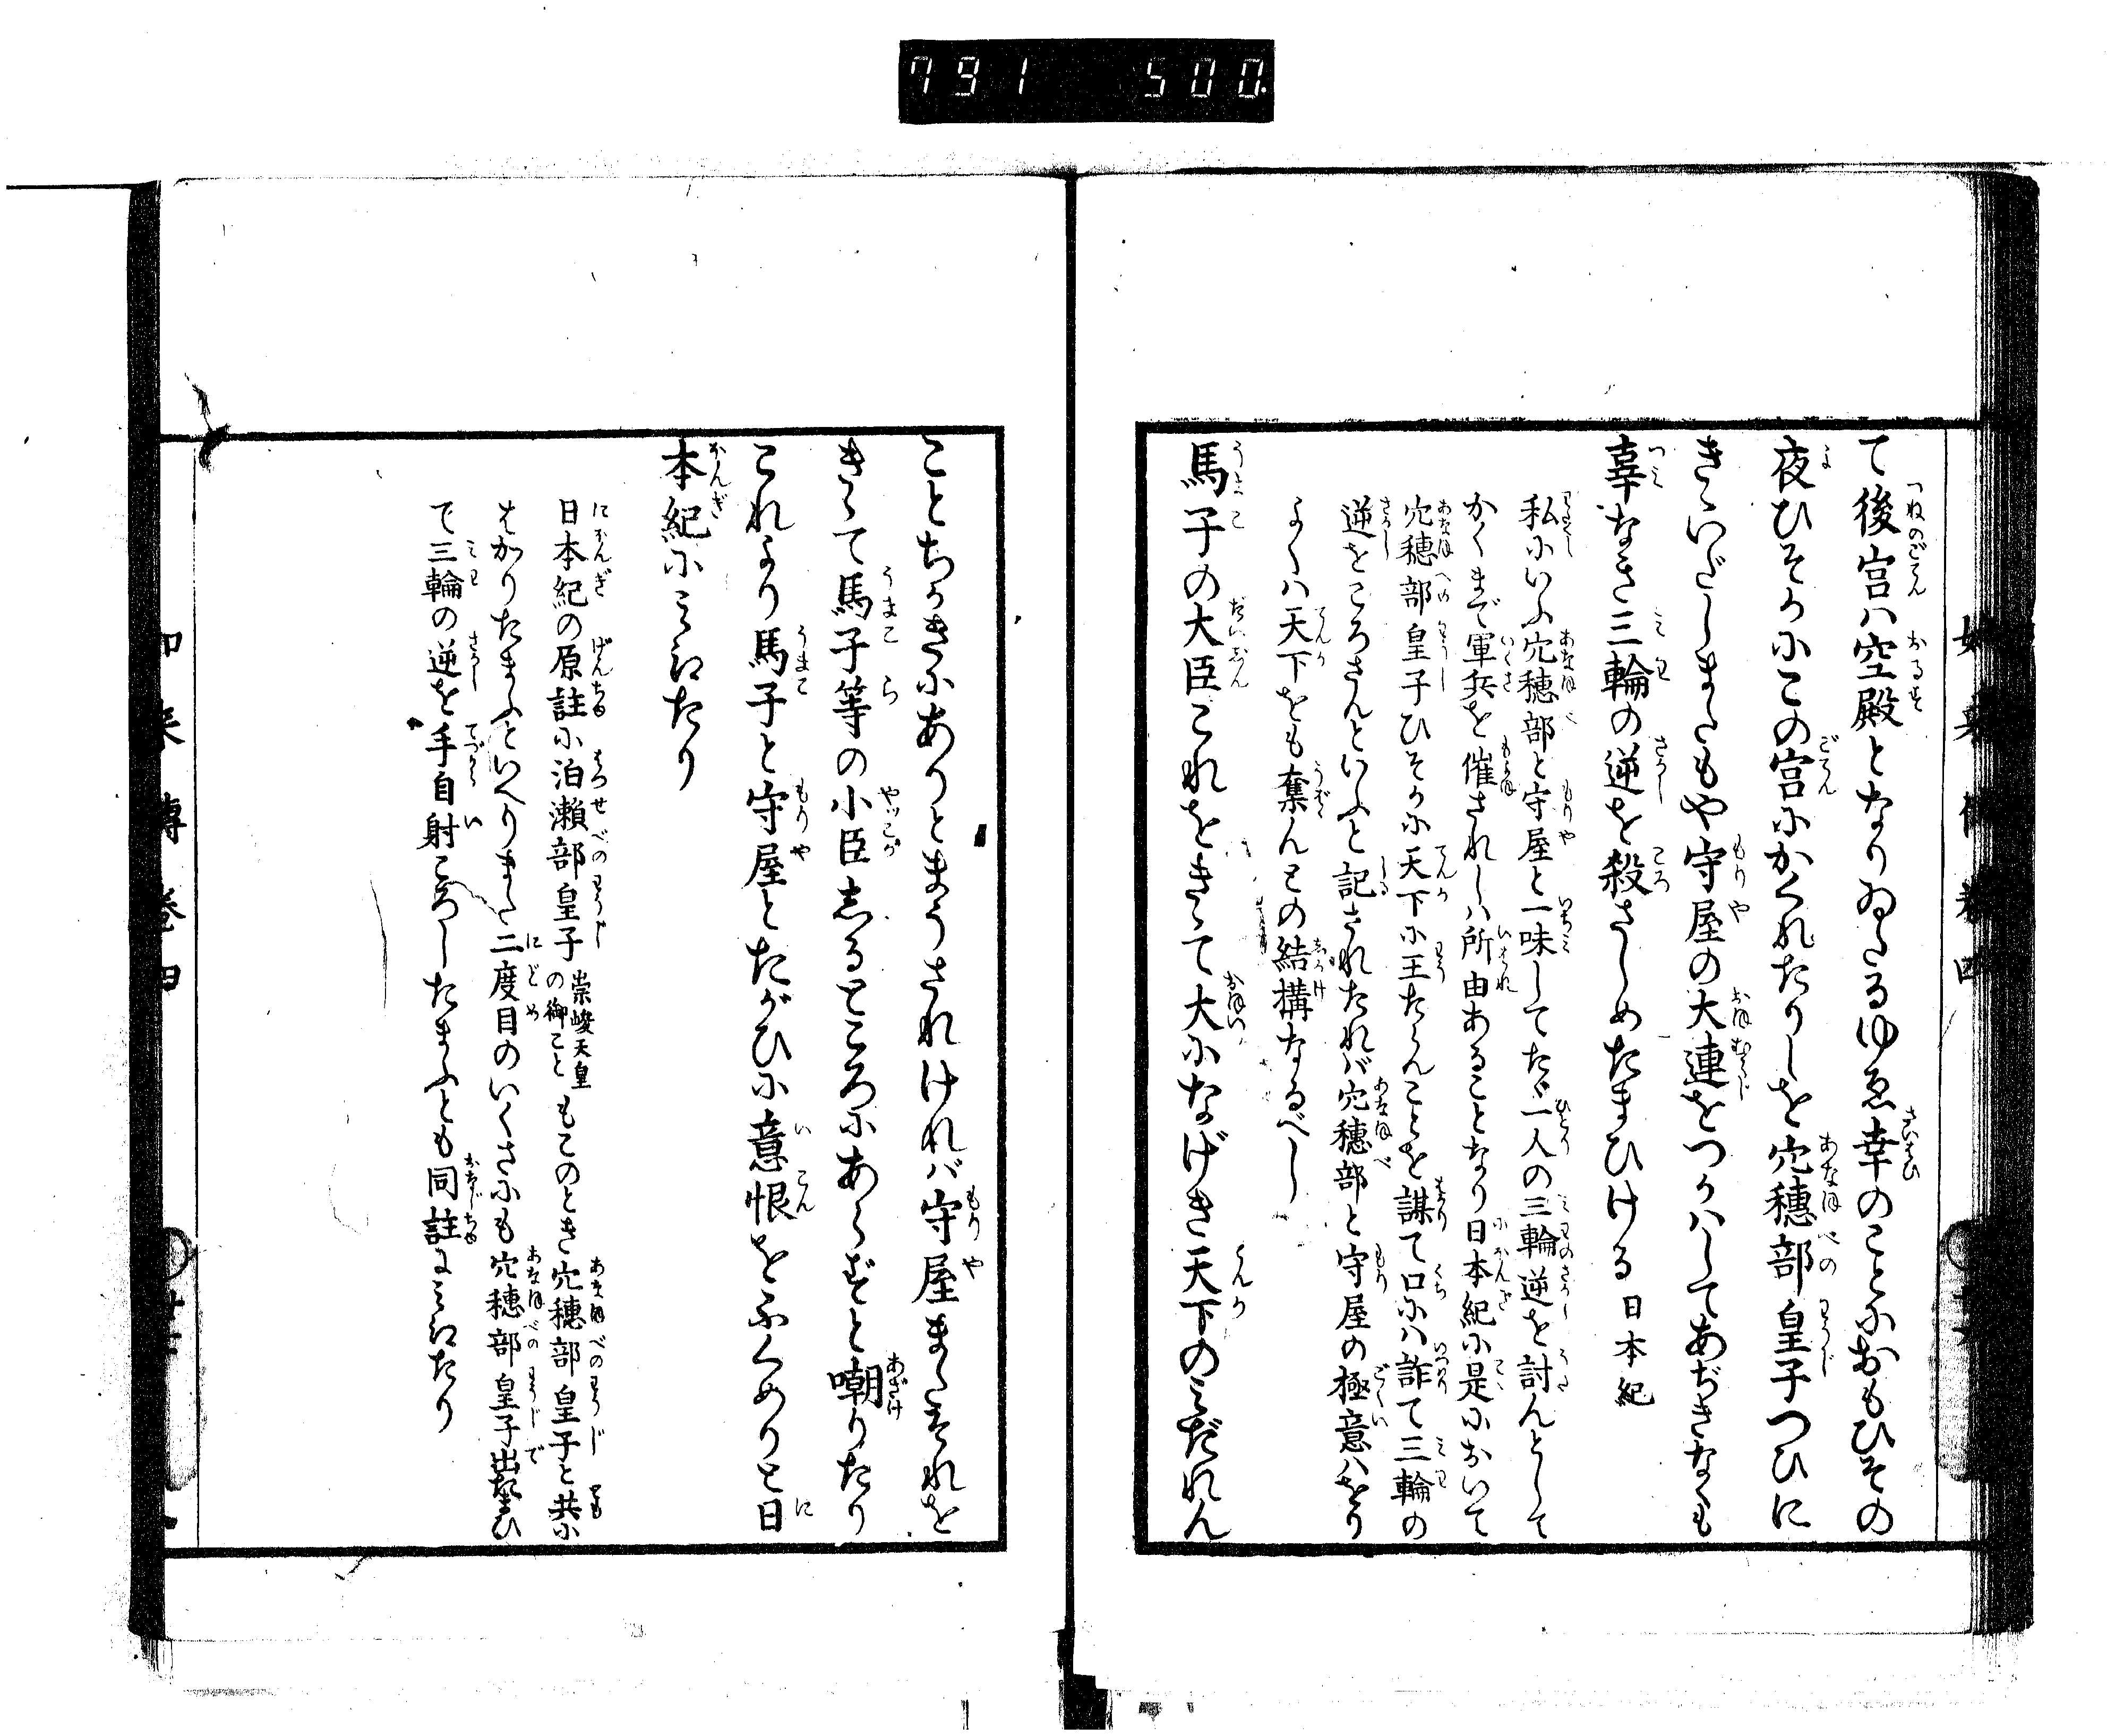 791 500
て後宮ハ空殿となりゐたるゆゑ幸のことにおもひその
夜ひそかにこの宮にかくれたりしを穴穂部皇子つひに
きゝいだしまたもや守屋の大連をつかハしてあぢきなくも
辜なき三輪の逆を殺さしめたまひける 日本紀
私にいふ穴穂部と守屋と一味してたゞ一人の三輪逆を討んとして
かくまで軍兵を催されしハ所由あることなり日本紀に是において
穴穂部皇子ひそかに天下に王たらんことを謀て口にハ詐て三輪の
逆をころさんといふと記されたれバ穴穂部と守屋の極意ハをり
よくハ天下をも奪んとの結構なるべし
馬子の大臣これをきゝて大になげき天下のみだれん
ことちかきにありとまうされけれバ守屋またそれを
きゝて馬子等の小臣志るところにあらずと嘲りたり
これより馬子と守屋とたがひに意恨をふくめりと日
本紀にみえたり
日本紀の原註に泊瀬部皇子 崇峻天皇の御こと もこのとき穴穂部皇子と共に
はかりたまふといへりまた二度目のいくさにも穴穂部皇子出たまひ
て三輪の逆を手自射ころしたまふとも同註にみえたり
如来傳巻四